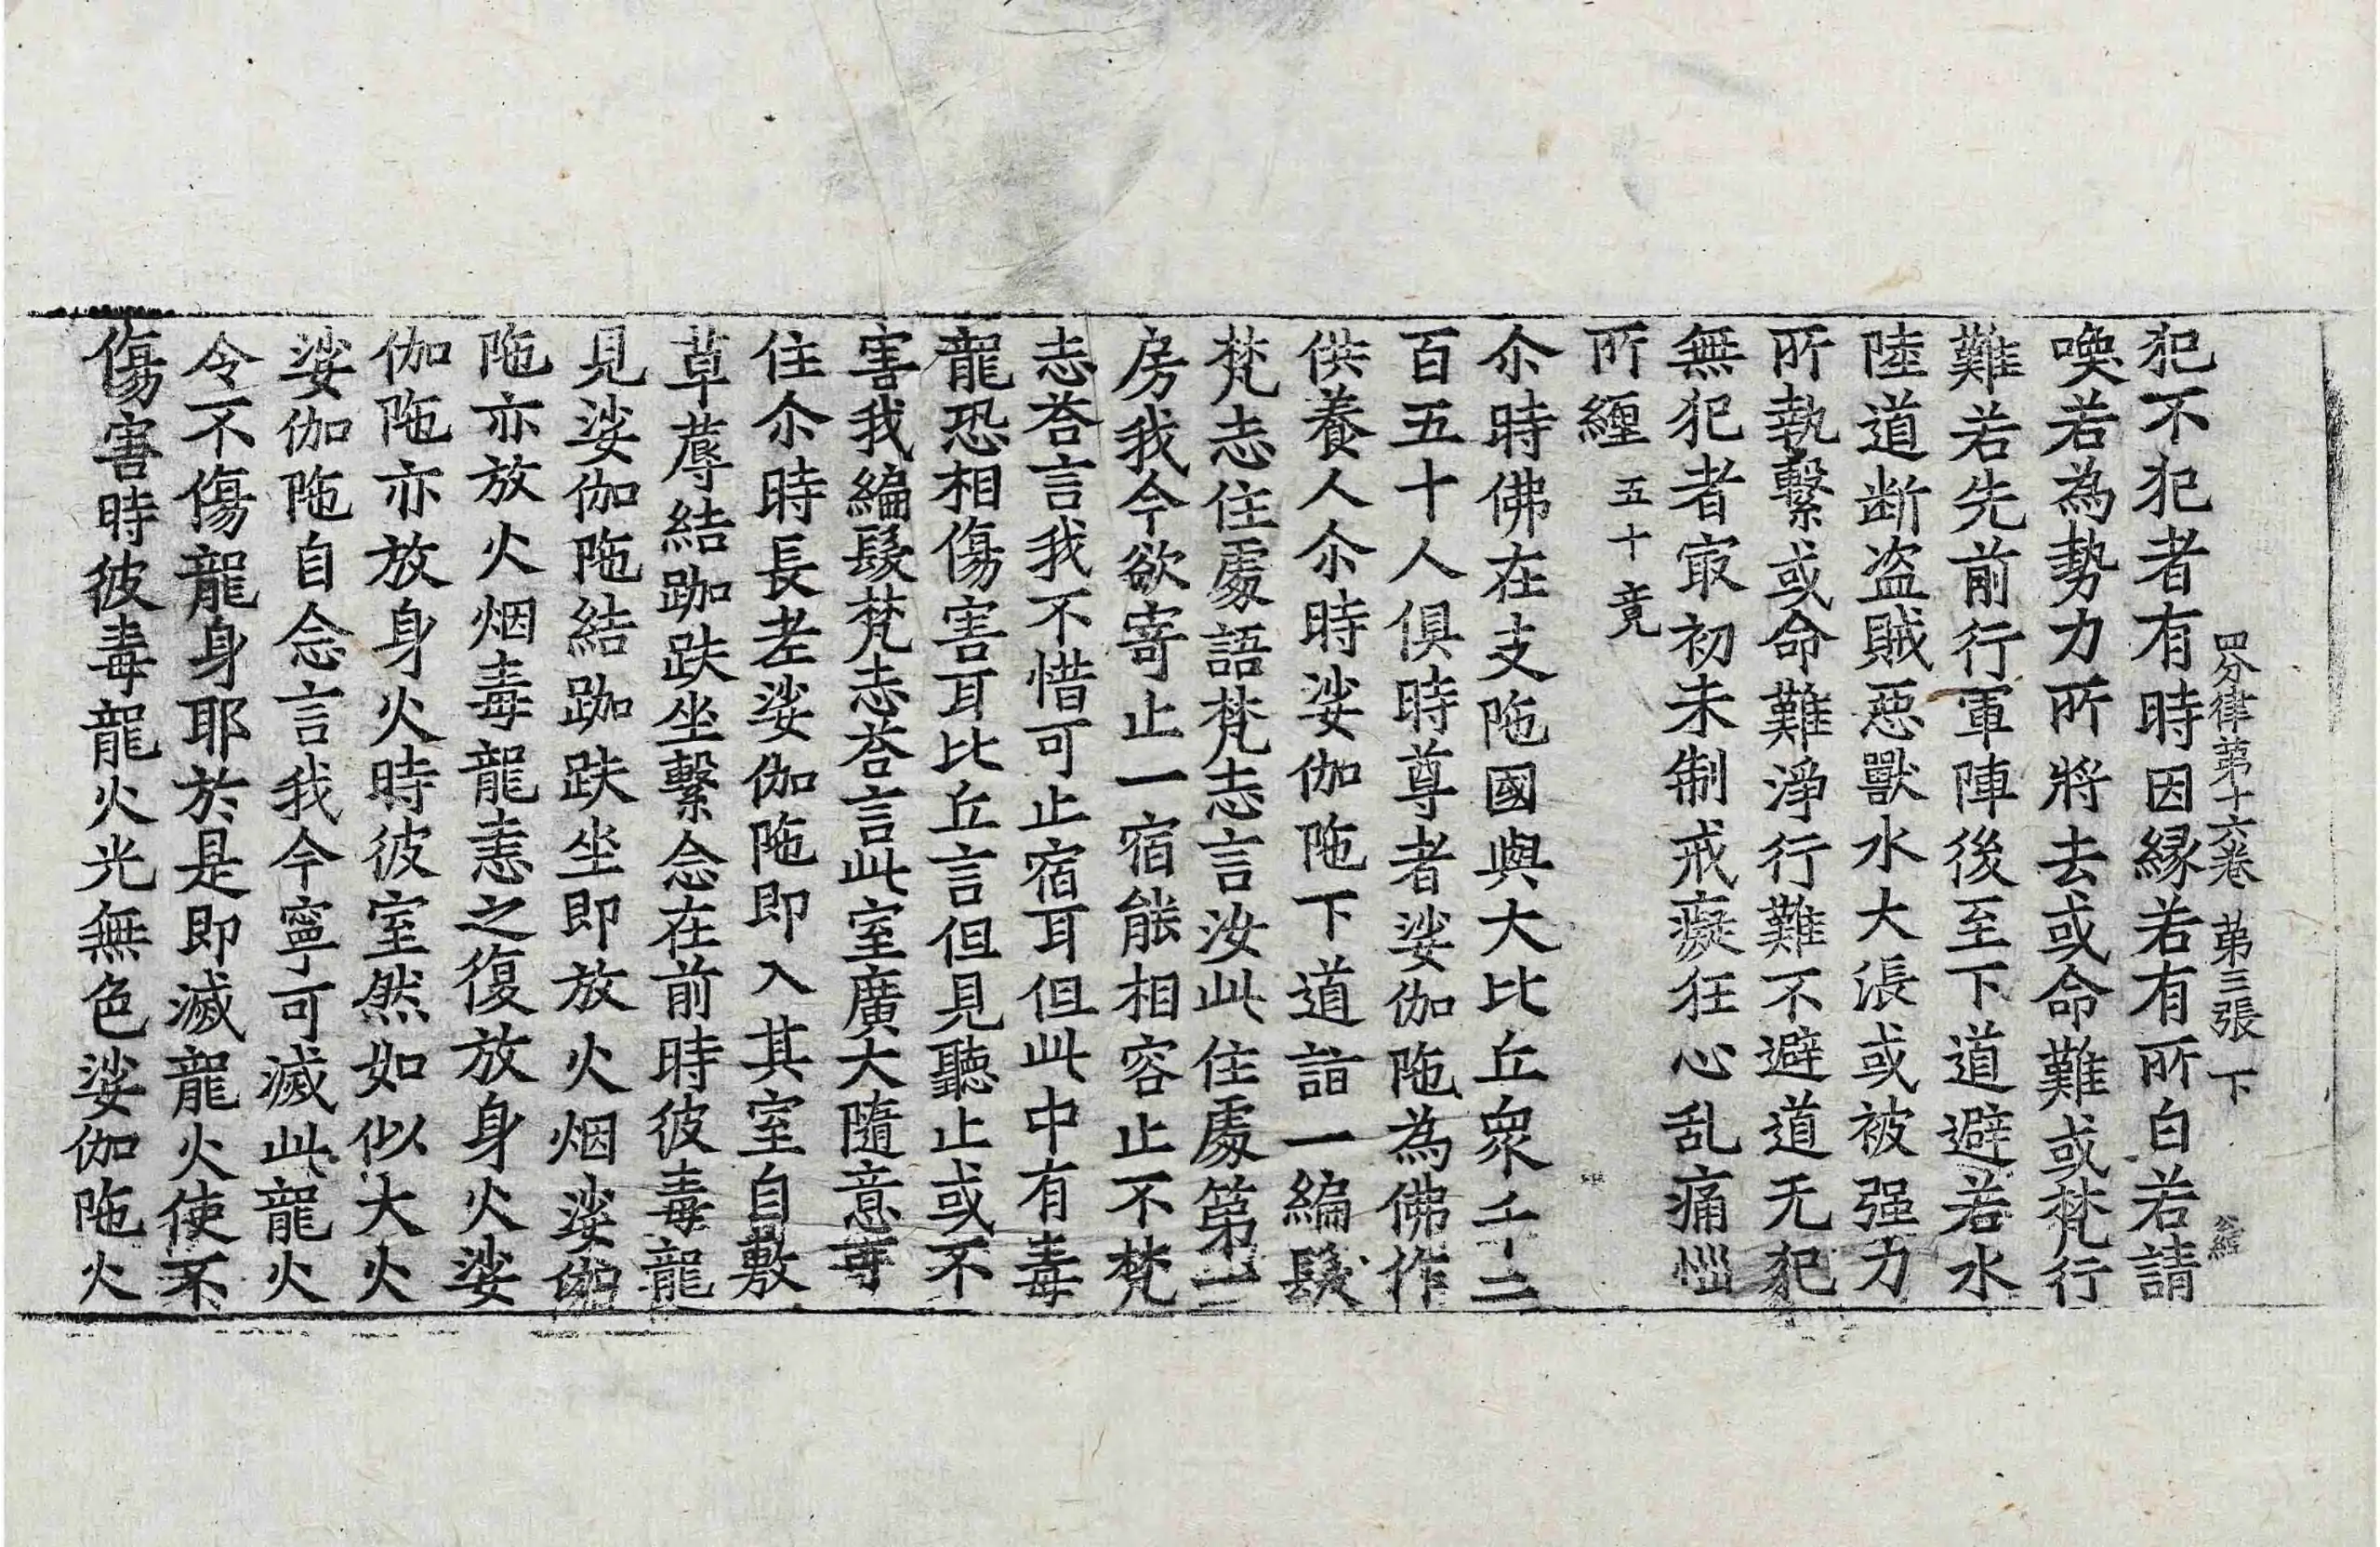 四分律第十六卷 第三張 下
犯不犯者有時因緣若有所白若請
喚若為勢力所將去或命難或梵行
難若先前行軍陣後至下道避若水
陸道断盗賊惡獸水大漲或被强力
所執繫或命難淨行難不避道无犯
無犯者冣初未制戒癡狂心乱痛惱
所纏五十竟
尒時佛在支陁國與大比丘衆千二
百五十人俱時尊者娑伽陁為佛作
供養人尒時娑伽陁下道詣一編髮
梵志住處語梵志言汝此住處第一
房我今欲寄止一宿能相容止不梵
志荅言我不惜可止宿耳但此中有毒
龍恐相傷害耳比丘言但見聽止或不
害我編髮梵志荅言此室廣大隨意可
住尒時長老娑伽陁即入其室自敷
草蓐結跏趺坐繫念在前時彼毒龍
見娑伽陁結跏趺坐即放火烟娑伽
陁亦放火烟毒龍恚之復放身火娑
伽陁亦放身火時彼室然如似大火
娑伽陁自念言我今寧可滅此龍火
令不傷龍身耶於是即滅龍火使不
傷害時彼毒龍火光無色娑伽陁火